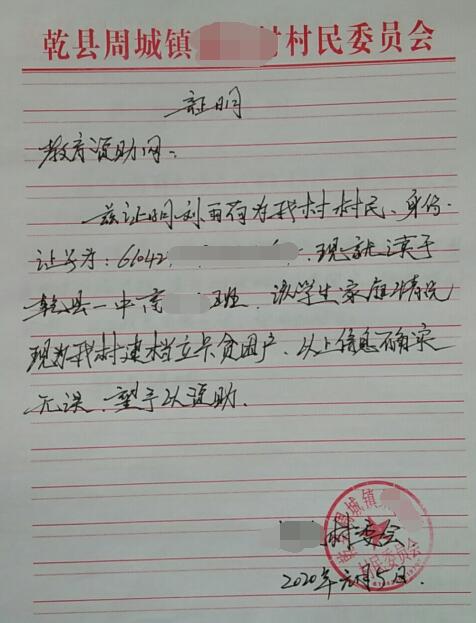 乾县周城镇 村村民委员会
证明
教育资助网:
兹证明刘丽荷为我村村民、身份
证号为:61042 , 现就读于
乾县一中高 班, 该学生家庭情况
现为我村建档立卡贫困户、以上信息确实
无误、望予以资助.
村委会
2020年元月5日.
乾县周城镇 村民委员会